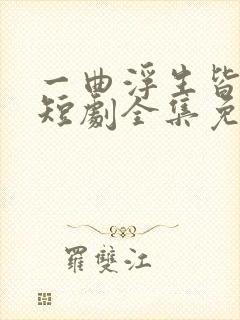 一曲浮生皆
短劇全集免
羅雙江